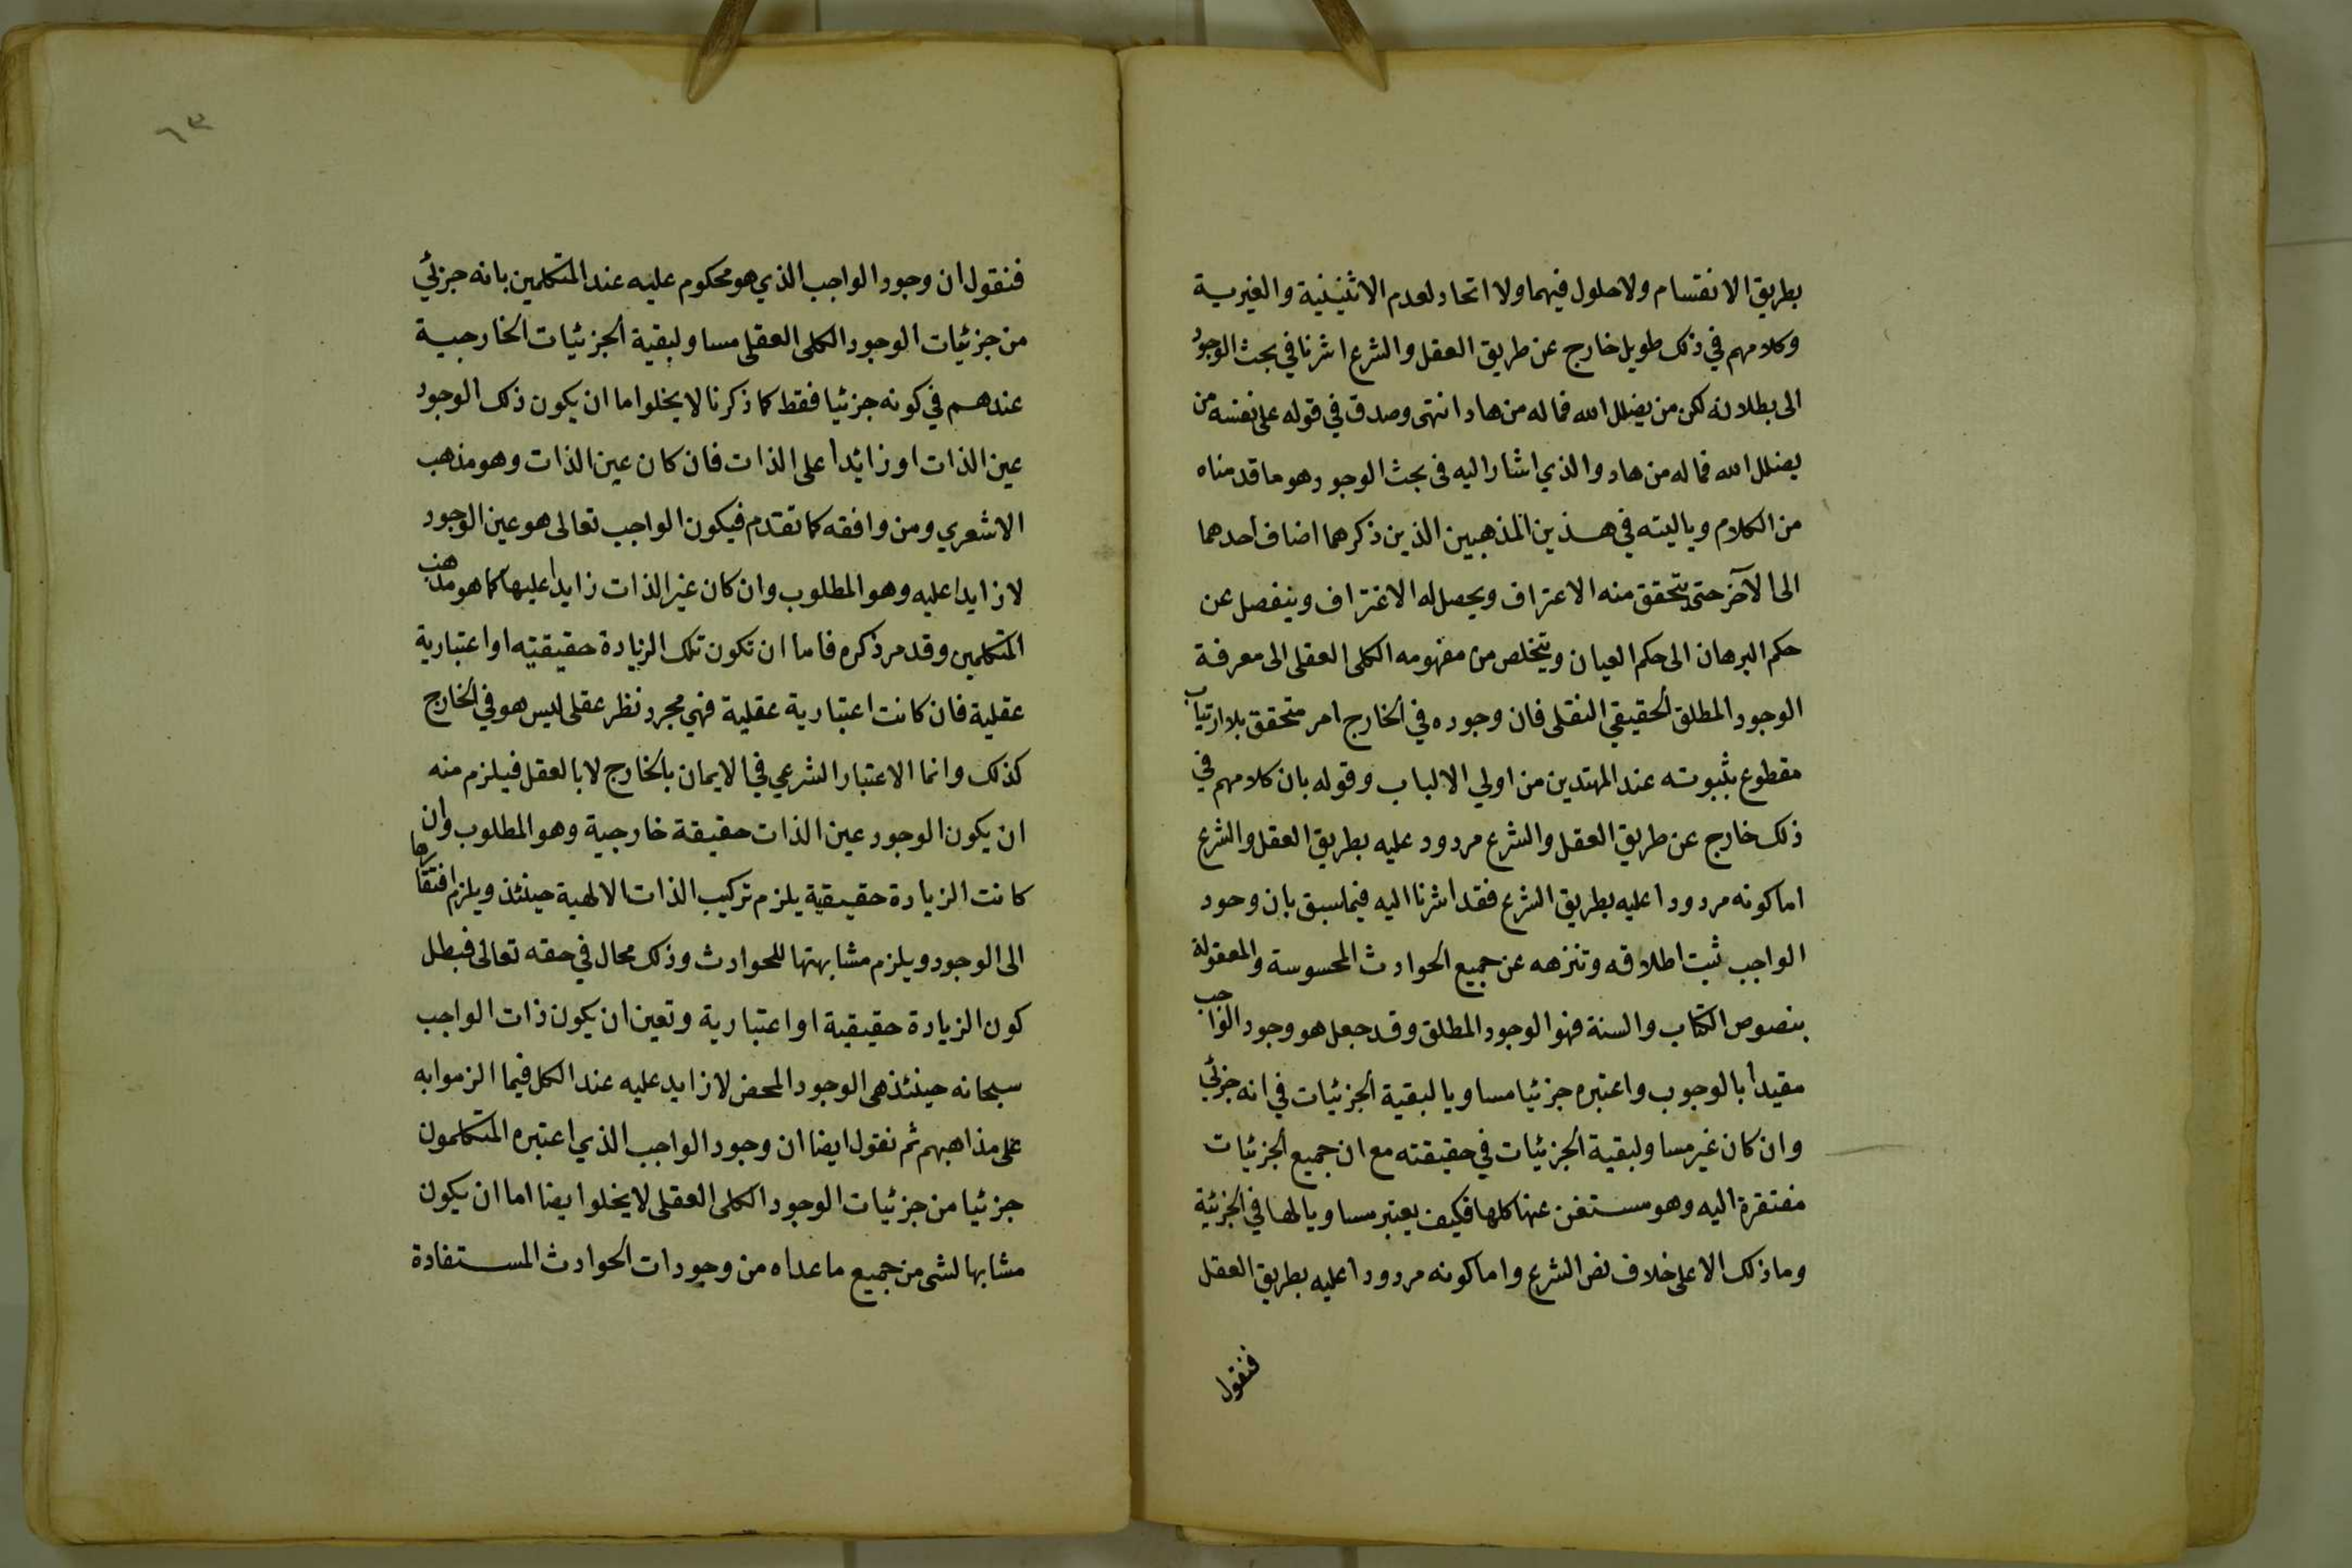 بطريق الانقسام ولا حلول فيهما ولا اتحاد لعدم الاثنينية والغيرية
وكلامهم في ذلك طويل خارج عن طريق العقل والشرع اشرنا في بحث الوجود
الى بطلانه لكن من يضلل الله فماله من هاد انتهى وصدق في قوله على نفسه من
يضلل الله فماله من هاد والذي اشار اليه فى بحث الوجود هو ما قدمناه
من الكلام وياليته في هذين المذهبين الذين ذكرهما اضاف احدهما
الى الآخر حتى يتحقق منه الاعتراف ويحصل له الاغتراف وينفصل عن
حكم البرهان الى حكم العيان ويتخلص من مفهومه الكلى العقلى الى معرفة
الوجود المطلق الحقيقي النقلى فان وجوده في الخارج امر متحقق بلا ارتياب
مقطوع بثبوته عند المهتدين من اولي الالباب وقوله بان كلامهم في
ذلك خارج عن طريق العقل والشرع مردود عليه بطريق العقل والشرع
اما كونه مردودا عليه بطريق الشرع فقد اشرنا اليه فيما سبق بان وجود
الواجب ثبت اطلاقه وتنزهه عن جميع الحوادث المحسوسة والمعقولة
بنصوص الكتاب والسنة فهو الوجود المطلق وقد جعل هو وجود الواجب
مقيدا بالوجوب واعتبره جزئيا مساويا لبقية الجزئيات في انه جزئي
وان كان غير مساو لبقية الجزئيات في حقيقته مع ان جميع الجزئيات
مفتقرة اليه وهو مستغن عنها كلها فكيف يعتبر مساويا لها في الجزئية
وما ذلك الا على خلاف نص الشرع واما كونه مردودا عليه بطريق العقل
فنقول
٦٣
فنقول ان وجود الواجب الذي هو محكوم عليه عند المتكلمين بانه جزئي
من جزئيات الوجود الكلى العقلى مساو لبقية الجزئيات الخارجية
عندهم في كونه جزئيا فقط كما ذكرنا لا يخلوا ما ان يكون ذلك الوجود
عين الذات او زائدا على الذات فان كان عين الذات وهو مذهب
الاشعري ومن وافقه كما تقدم فيكون الواجب تعالى هو عين الوجود
لا زايدا عليه وهو المطلوب وان كان غير الذات زايدا عليها كما هو مذهب
المتكلمين وقد مر ذكره فاما ان تكون تلك الزيادة حقيقيته او اعتبارية
عقلية فان كانت اعتبارية عقلية فهي مجرد نظر عقلى ليس هو في الخارج
كذلك وانما الاعتبار الشرعي في الايمان بالخارج لا بالعقل فيلزم منه
ان يكون الوجود عين الذات حقيقة خارجية وهو المطلوب وان
كانت الزيادة حقيقية يلزم تركيب الذات الالهية حينئذ ويلزم افتقارها
الى الوجود ويلزم مشابهتها للحوادث وذلك محال في حقه تعالى فبطل
كون الزيادة حقيقية او اعتبارية وتعين ان يكون ذات الواجب
سبحانه حينئذ هى الوجود المحض لا زايد عليه عند الكل فيما الزموا به
على مذاهبهم ثم نقول ايضا ان وجود الواجب الذي اعتبره المتكلمون
جزئيا من جزئيات الوجود الكلى العقلى لا يخلوا يضا اما ان يكون
مشابها لشى من جميع ما عداه من وجودات الحوادث المستفادة